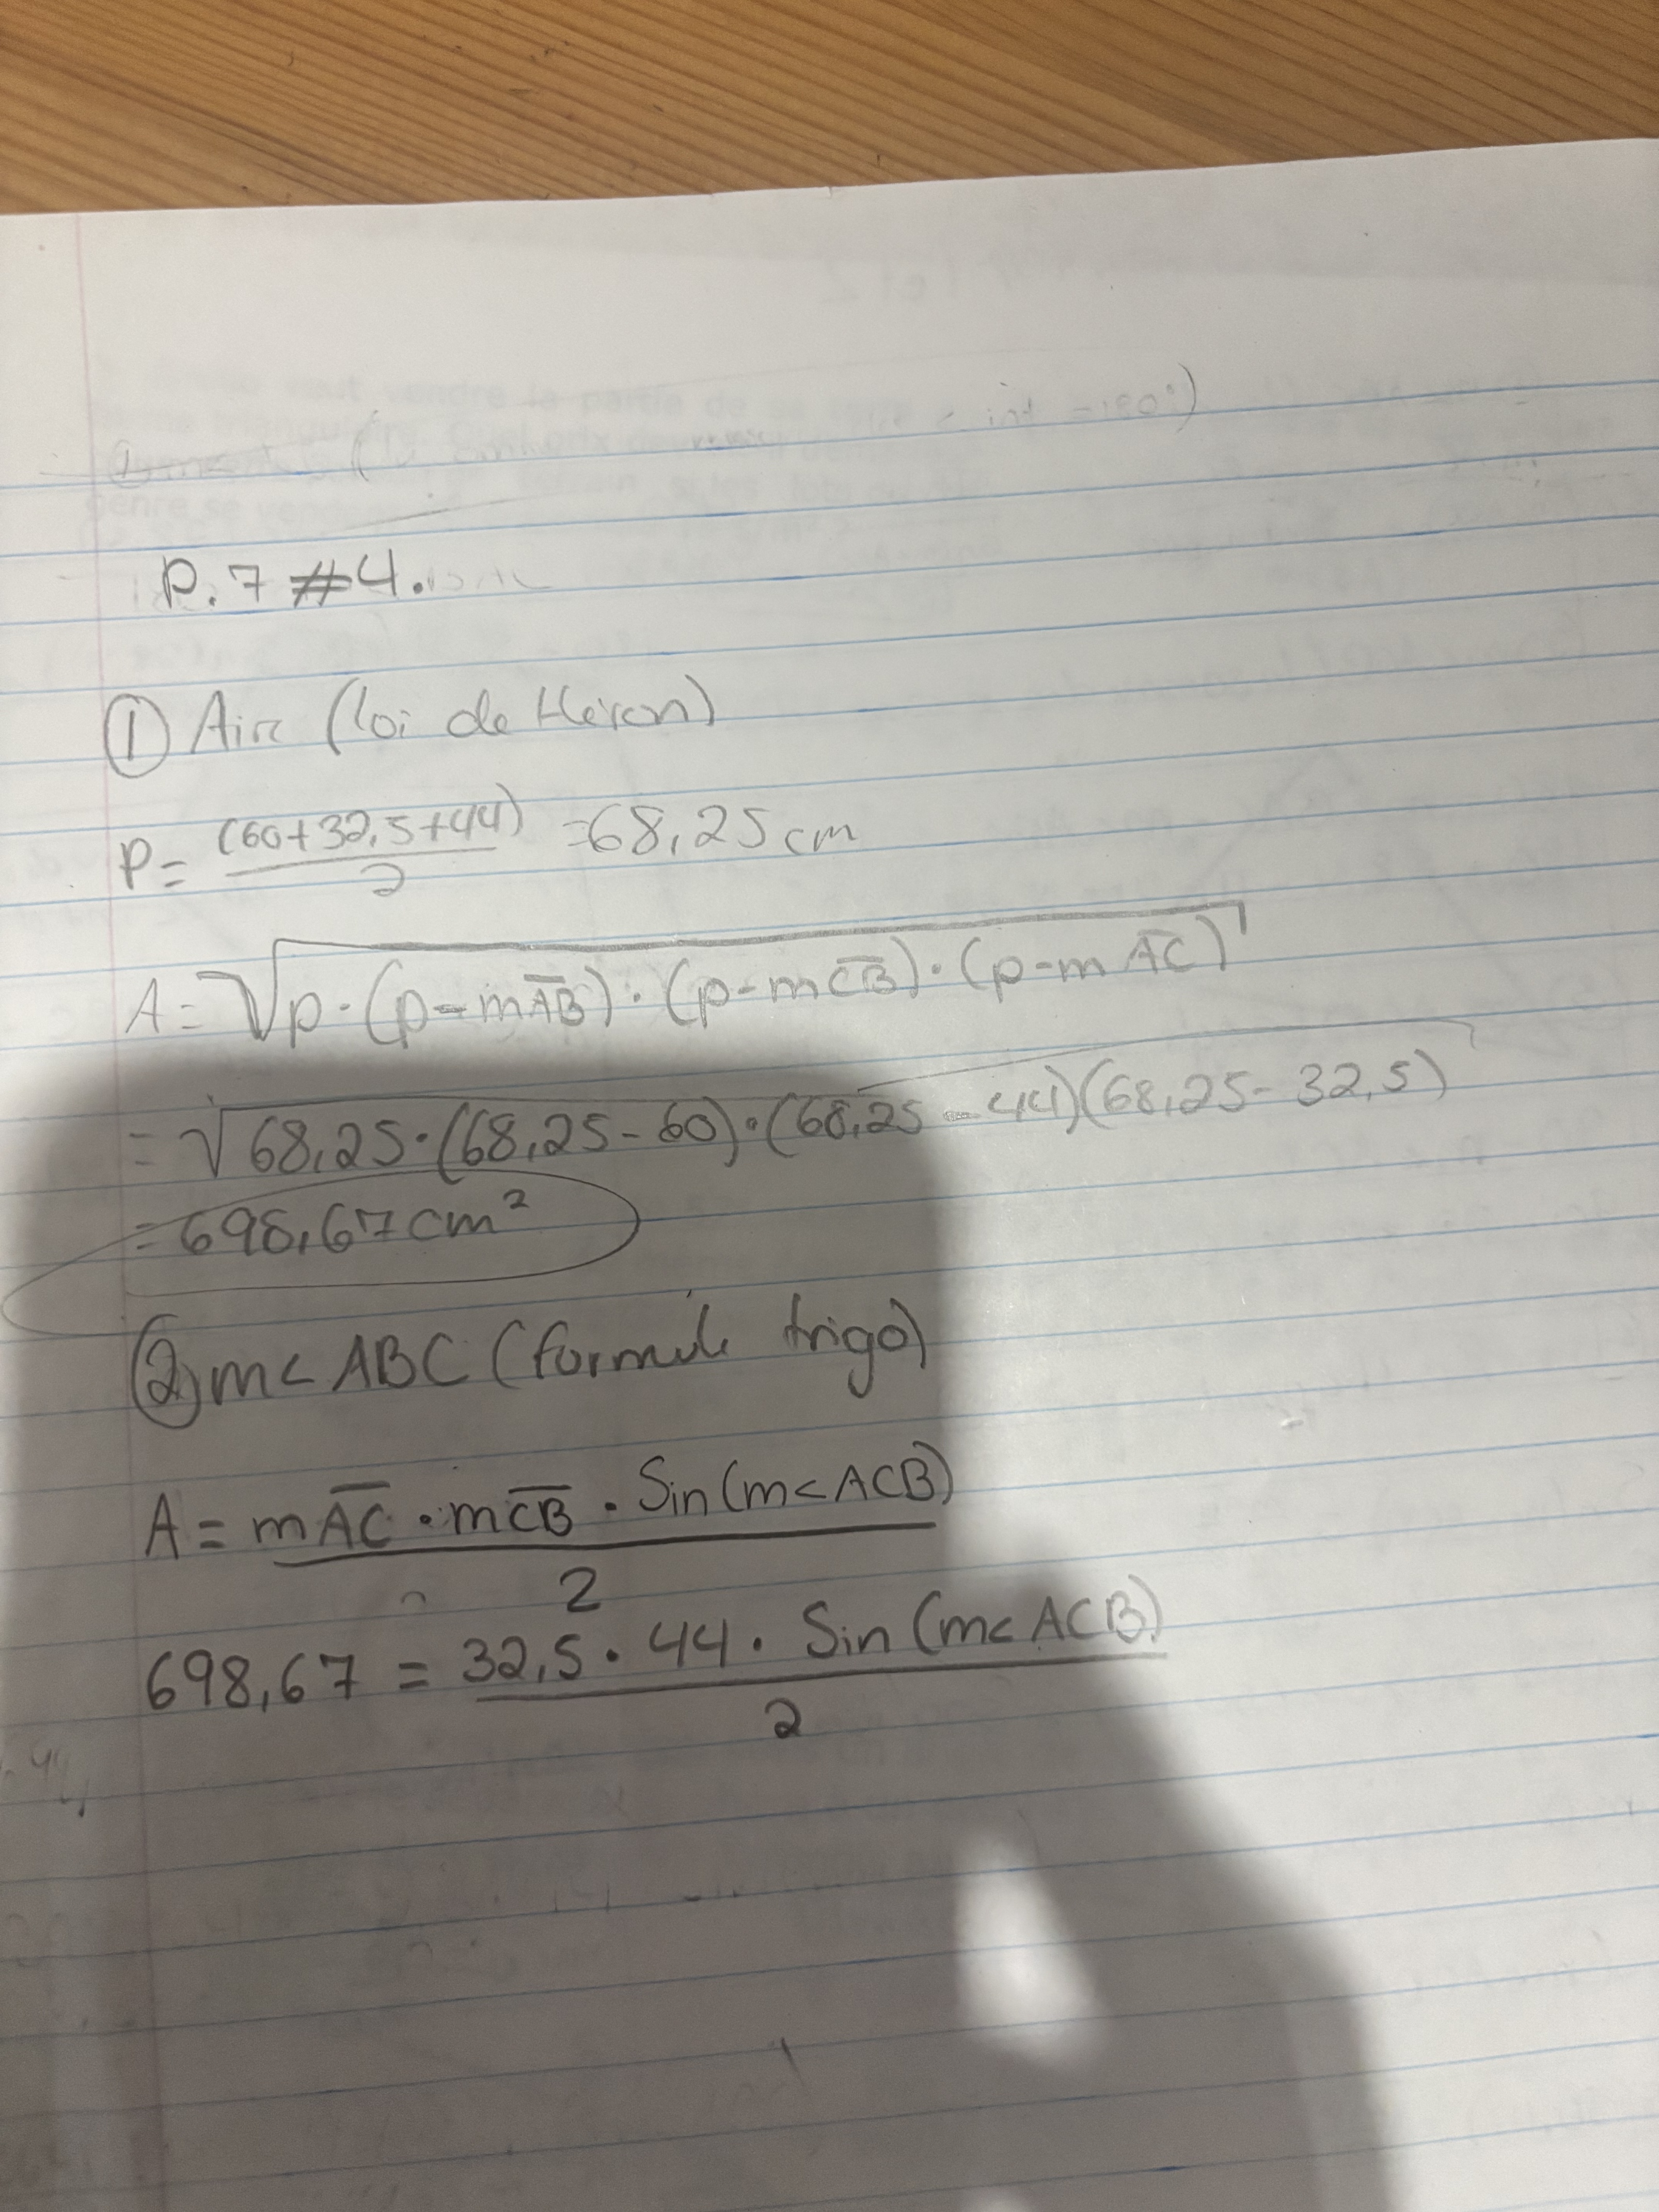 P.7 #4.
① Aire (loi de Héron)
P = (60+32,5+44) / 2 = 68,25 cm
A = √p·(p-mAB)·(p-mCB)·(p-mAC)
= √68,25·(68,25-60)·(68,25-44)(68,25-32,5)
= 698,67 cm²
② m< ABC (formule trigo)
A = mAC · mCB · Sin(m<ACB) / 2
698,67 = 32,5 · 44 · Sin(m<ACB) / 2